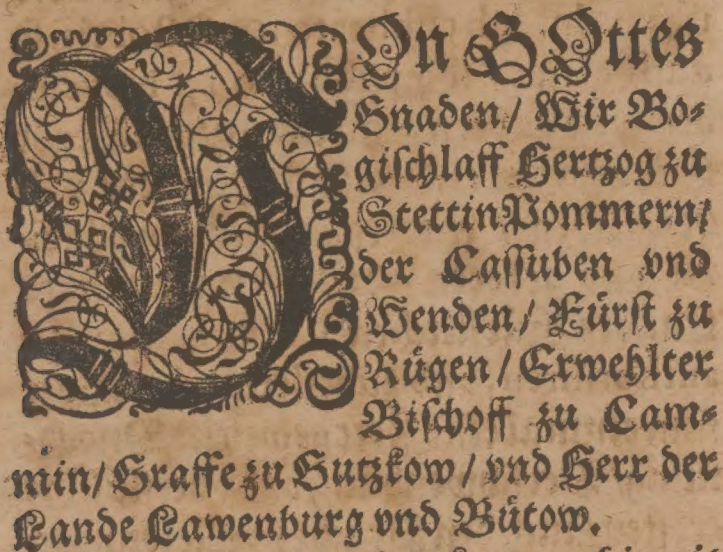 VOn GOttes
Gnaden/ Wir Bo⸗
gischlaff Hertzog zu
Stettin Pommern/
der Cassuben vnd
Wenden/ Fürst zu
Rügen/ Erwehlter
Bischoff zu Cam⸗
min/ Graffe zu Gutzkow/ vnd Herr der
Lande Lawenburg vnd Bütow.